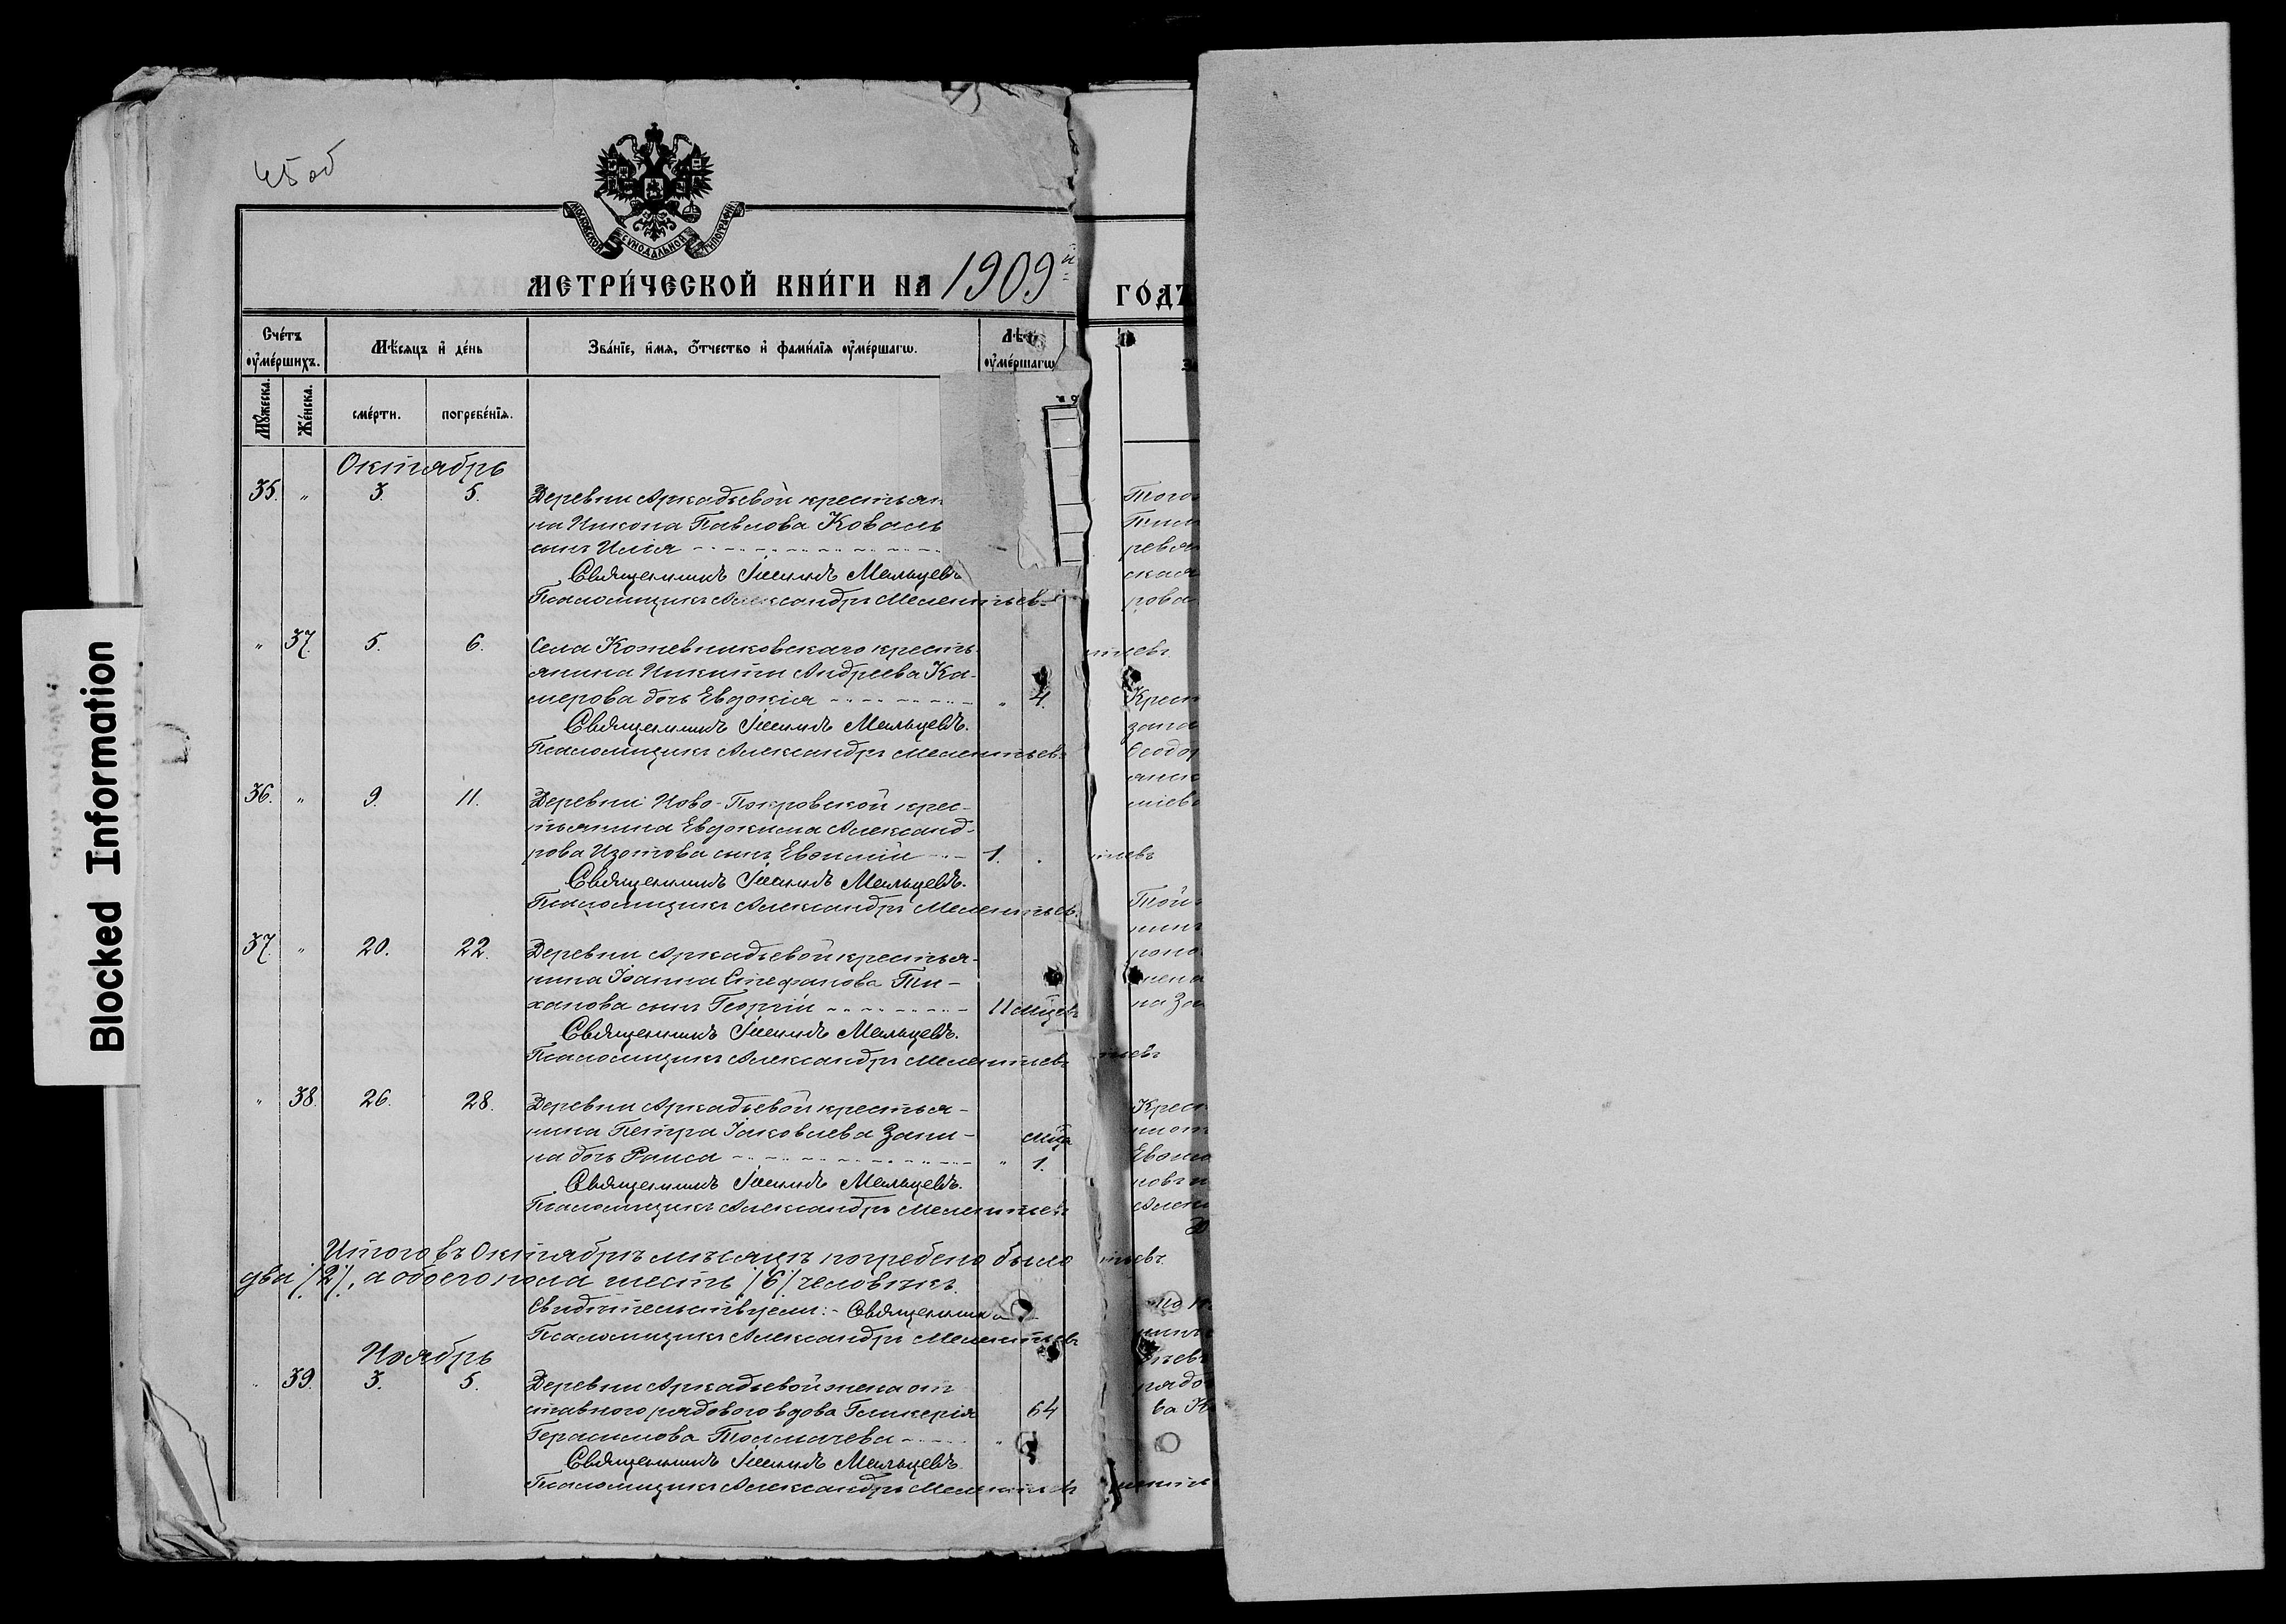 45 об
МОСКОВСКОЙ СѴНОДАЛЬНОЙ ТИПОГРАФІИ
МЕТРИ́ЧЕСКОЙ КНИ́ГИ НА 1909й
ГО́ДЪ
Сче́тъ оу҆ме́ршихъ.
Мѣ́сяцъ и҆ де́нь
Зва́нїе, и҆́мя, ѻ҆́тчество и҆ фами́лїя оу҆ме́ршагѡ.
Лѣ́т оу҆ме́ршагѡ
Му́жеска.
Же́нска.
сме́рти.
погребе́нїя.
Октябрь
35. " 3. 5. Деревни Аркадьевой крестьян
на Никона Павлова Коваль
сынъ Илія
Священникъ Іоаннъ Мальцевъ
Псаломщикъ Александръ Мелентьевъ
" 37. 5. 6. Села Кожевниковскаго кресть-
янина Никиты Андреева Ка-
мерова дочь Евдокія " 4.
Священникъ Іоаннъ Мальцевъ.
Псаломщикъ Александръ Мелентьевъ
36. " 9. 11. Деревни Ново-Покровской крес-
тьянина Евдокима Александ-
рова Изотова сынъ Евѳимій 1.
Священникъ Іоаннъ Мальцевъ.
Псаломщикъ Александръ Мелентьев.
37. " 20. 22. Деревни Аркадьевой крестья-
нина Іоанна Стефанова Ти-
ханова сынъ Георгій 11 мцевъ
Священникъ Іоаннъ Мальцевъ.
Псаломщикъ Александръ Мелентьевъ
" 38. 26. 28. Деревни Аркадьевой крестья-
нина Петра Іаковлева Зани- мца
на дочь Раиса " 1.
Священникъ Іоаннъ Мальцевъ.
Псаломщикъ Александръ Мелентьевъ
Итого въ Октябрѣ мѣсяцѣ погребено было
два /2/, а обоего пола шесть /6/ человѣкъ.
Свидѣтельствуемъ:- Священник
Псаломщикъ Александръ Мелентьевъ
Ноябрь
" 39. 3. 5. Деревни Аркадьевой жена от
ставного рядового вдова Гликерія 64
Герасимова Толмачева "
Священникъ Іоаннъ Мальцевъ
Псаломщикъ Александръ Мелентьевъ
Blocked Information